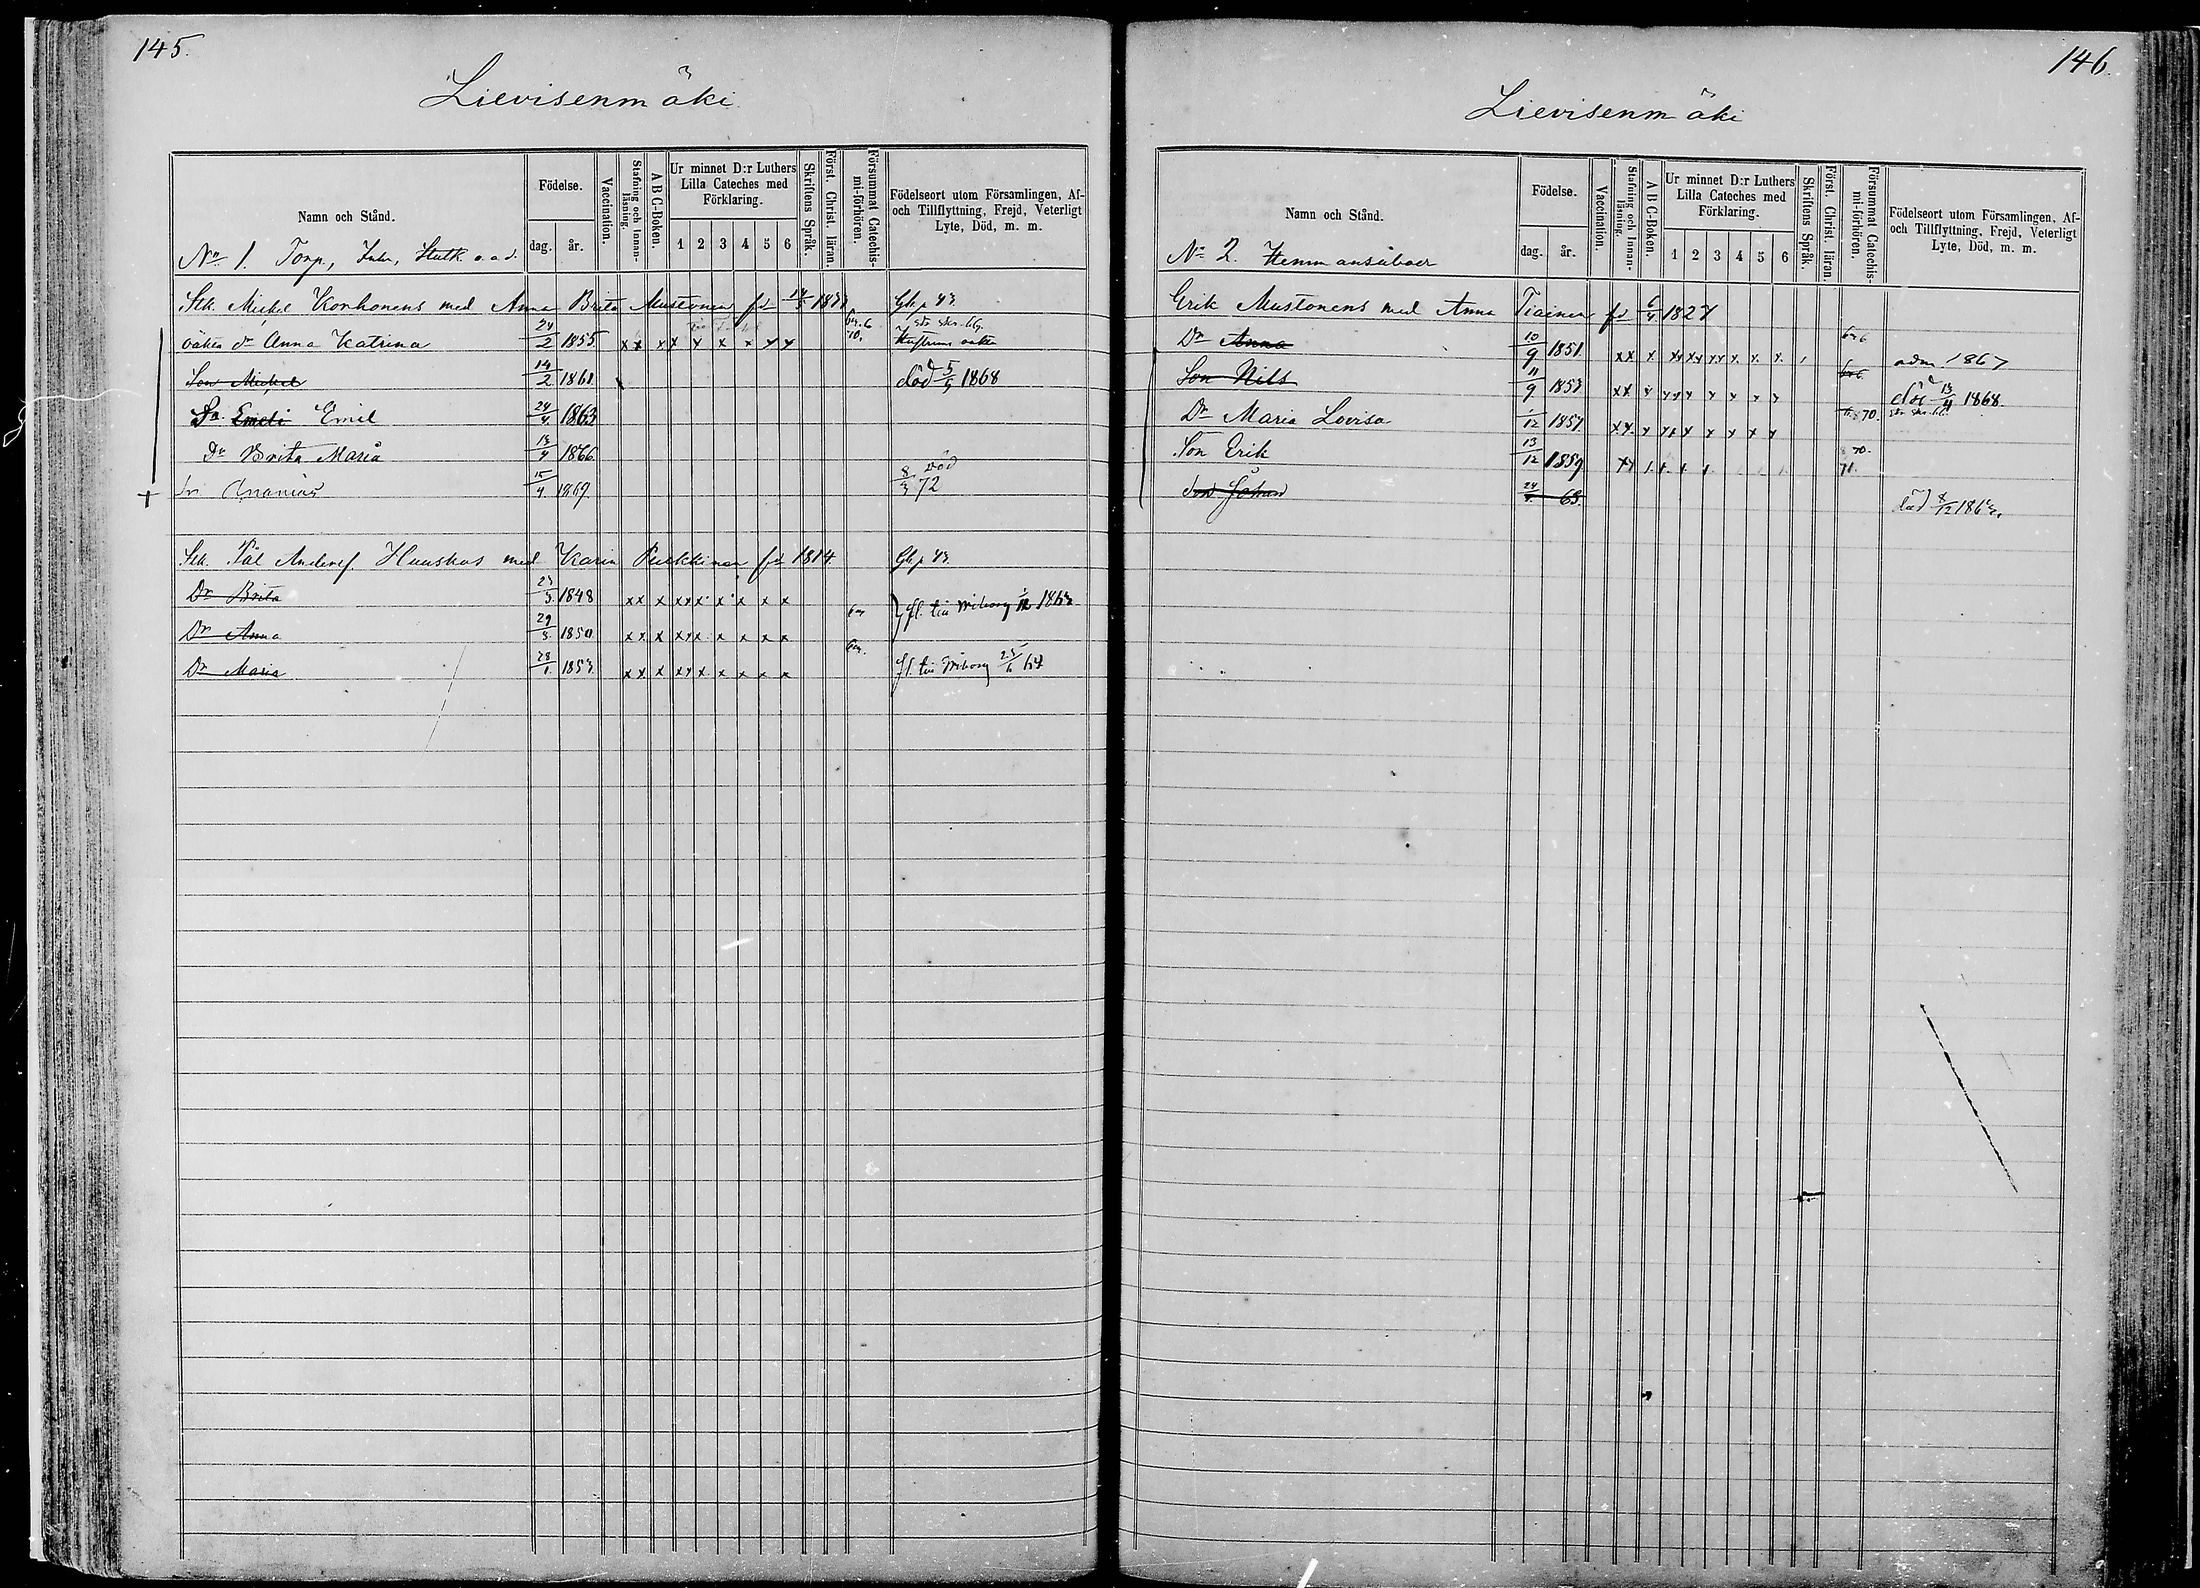 145.
Lievisenmäki
Namn och Stånd.
Födelse.
dag. år.
Vaccination.
Stafning och Innanläsning.
A B C-Boken.
Ur minnet D:r Luthers Lilla Cateches med Förklaring.
1 2 3 4 5 6
Skriftens Språk.
Först. Christ. läran.
Försummat Catechismi-förhören.
Födelseort utom Församlingen, Af- och Tillflyttning, Frejd, Veterligt Lyte, Död, m. m.
No 1. Torp., Inh., Statk. o.a.d.
Stk. Michel Korhonens med Anna Brita Mustonen fd 1831 Gb p 43
oäkta dr Anna Katrina 24/2 1855 x x x x x x x x x
Son Mickel 14/2 1861 död 5/5 1868
Sn Emeli Emil 24/4 1863
Dr Brita Maria 13/4 1866
sn Ananias 15/4 1869 död 8/3 72
Stk. Pål Andersf. Huuskos med Karin Pulkkinen fd 1814 Gb p 43
Dr Brita 23/5 1848 x x x x x x x x x x
fl. till Wiborg 1863
Dr Anna 29/3 1850 x x x x x x x x x x
Dr Maria 28/1 1853 x x x x x x x x x x fl. till Wiborg 25/6 64
146.
Lievisenmäki
Namn och Stånd.
Födelse.
dag. år.
Vaccination.
Stafning och Innanläsning.
A B C-Boken.
Ur minnet D:r Luthers Lilla Cateches med Förklaring.
1 2 3 4 5 6
Skriftens Språk.
Först. Christ. läran.
Försummat Catechismi-förhören.
Födelseort utom Församlingen, Af- och Tillflyttning, Frejd, Veterligt Lyte, Död, m. m.
No 2. Hemmansåboer
Erik Mustonens med Anna Tiainen fd 6/4 1827
Dr Anna 10/9 1851 adm. 1867
Son Nils 11/9 1853 död 13/4 1868.
Dr Maria Lovisa 1/12 1857 70.
Son Erik 13/12 1859 70. 71.
Son Johan 24/4 63. död 8/12 1863.